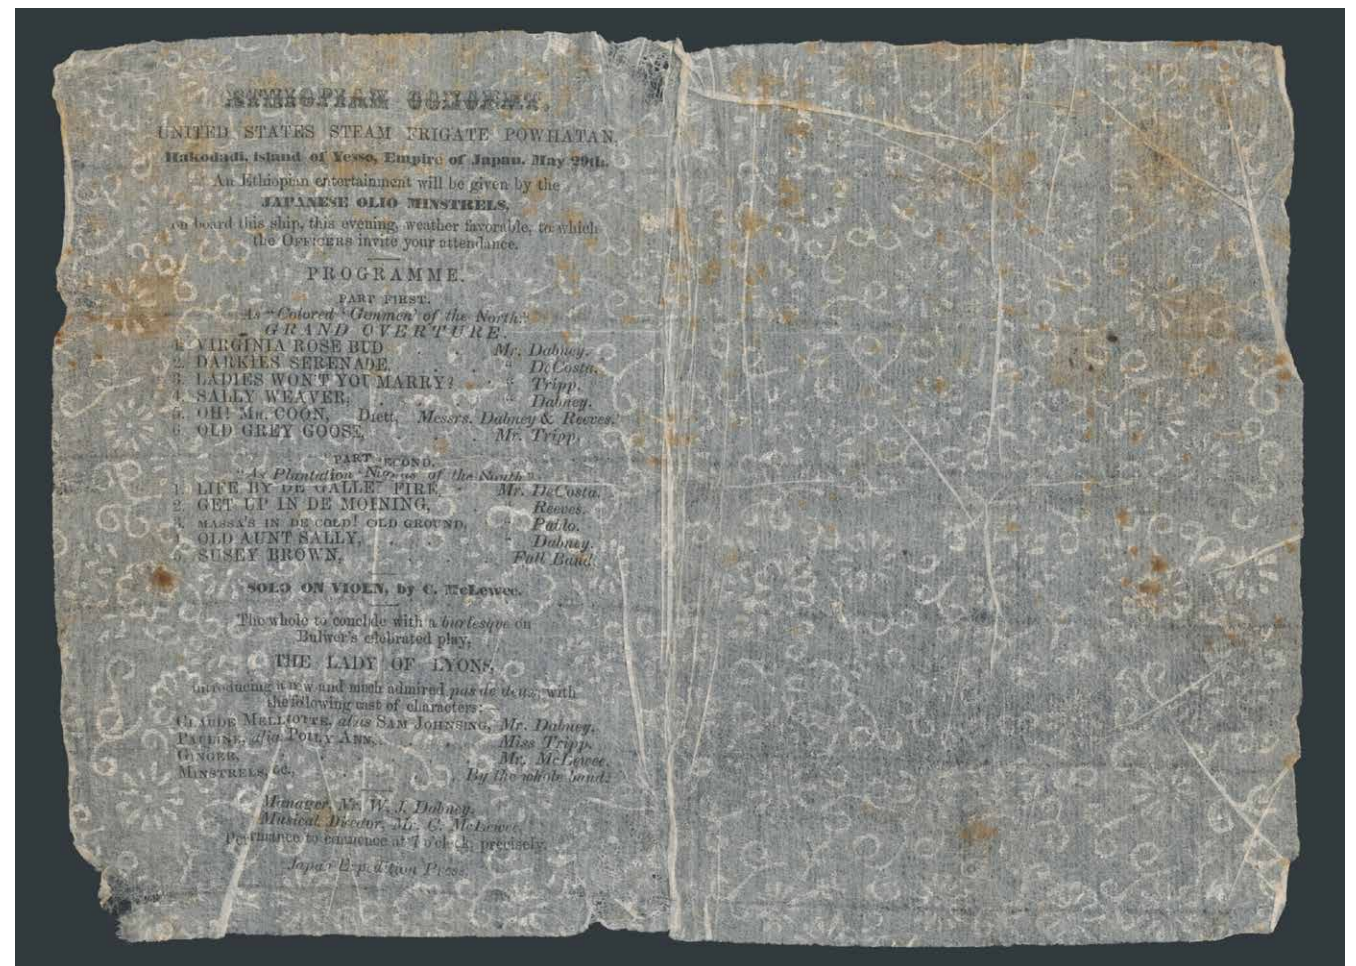 ETHIOPIAN CONCERT,
UNITED STATES STEAM FRIGATE POWHATAN.
Hakodadi, Island of Yesso, Empire of Japan, May 29th.
An Ethiopian entertainment will be given by the
JAPANESE OLIO MINSTRELS,
on board this ship, this evening, weather favorable, to which
the OFFICERS invite your attendance.
PROGRAMME.
PART FIRST.
As "Colored 'Gemmen' of the North."
GRAND OVERTURE.
1. VIRGINIA ROSE BUD . . Mr. Dabney.
2. DARKIES SERENADE, . . " DeCosta.
3. LADIES WON'T YOU MARRY? . " Tripp.
4. SALLY WEAVER, . . . " Dabney.
5. OH! MR. COON, Duett, Messrs. Dabney & Reeves.
6. OLD GREY GOOSE, . . . Mr. Tripp,
PART SECOND.
"As Plantation of the South"
1. LIFE BY DE GALLEY FIRE, . Mr. DeCosta.
2. GET UP IN DE MOINING, . Reeves.
3. MASSA'S IN DE COLD! OLD GROUND, "
4. OLD AUNT SALLY, . . . " Dabney.
5. SUSEY BROWN, . . . Full Band.
SOLO ON VIOLN, by C. McLewee.
The whole to conclude with a burlesque on
Bulwer's celebrated play,
THE LADY OF LYONS,
introducing a new and much admired pas de deux, with
the following cast of characters:
CLAUDE MELLIOTTS, alias SAM JOHNSING, Mr. Dabney.
PAULINE, alia POLLY ANN, . . . Miss Tripp.
GINGER, . . . Mr. McLewee.
MINSTRELS, &c., . . . By the whole band.
Manager, Mr. W. J. Dabney,
Musical Director, Mr. C. McLewee.
Performance to commence at 7 o'clock, precisely.
Japan Expedition Press.